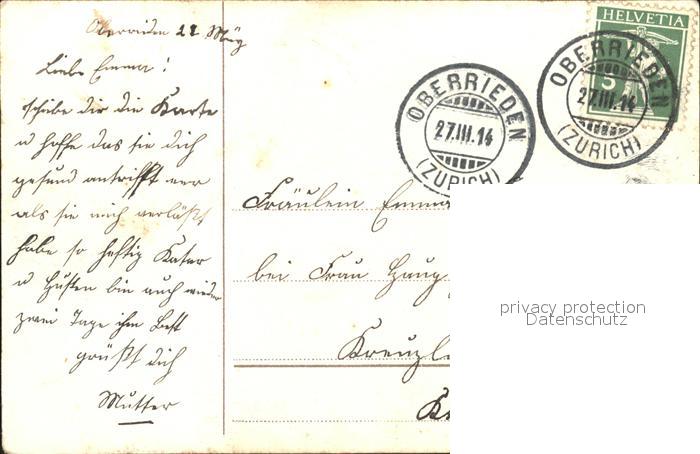 Oberrieden 22 März
Liebe Emma!
schibe dir die Karte
u hoffe das sie dich
gesund antrifft
als sie mich verläßt
habe so heftig Katar
u Husten bin auch wieder
zwei Tage im Bett
grüßt dich
Mutter
HELVETIA
5
OBERRIEDEN
27.III.14
(ZÜRICH)
OBERRIEDEN
27.III.14
(ZÜRICH)
Fräulein Emma
bei Frau Haug
Kreuzl
privacy protection
Datenschutz